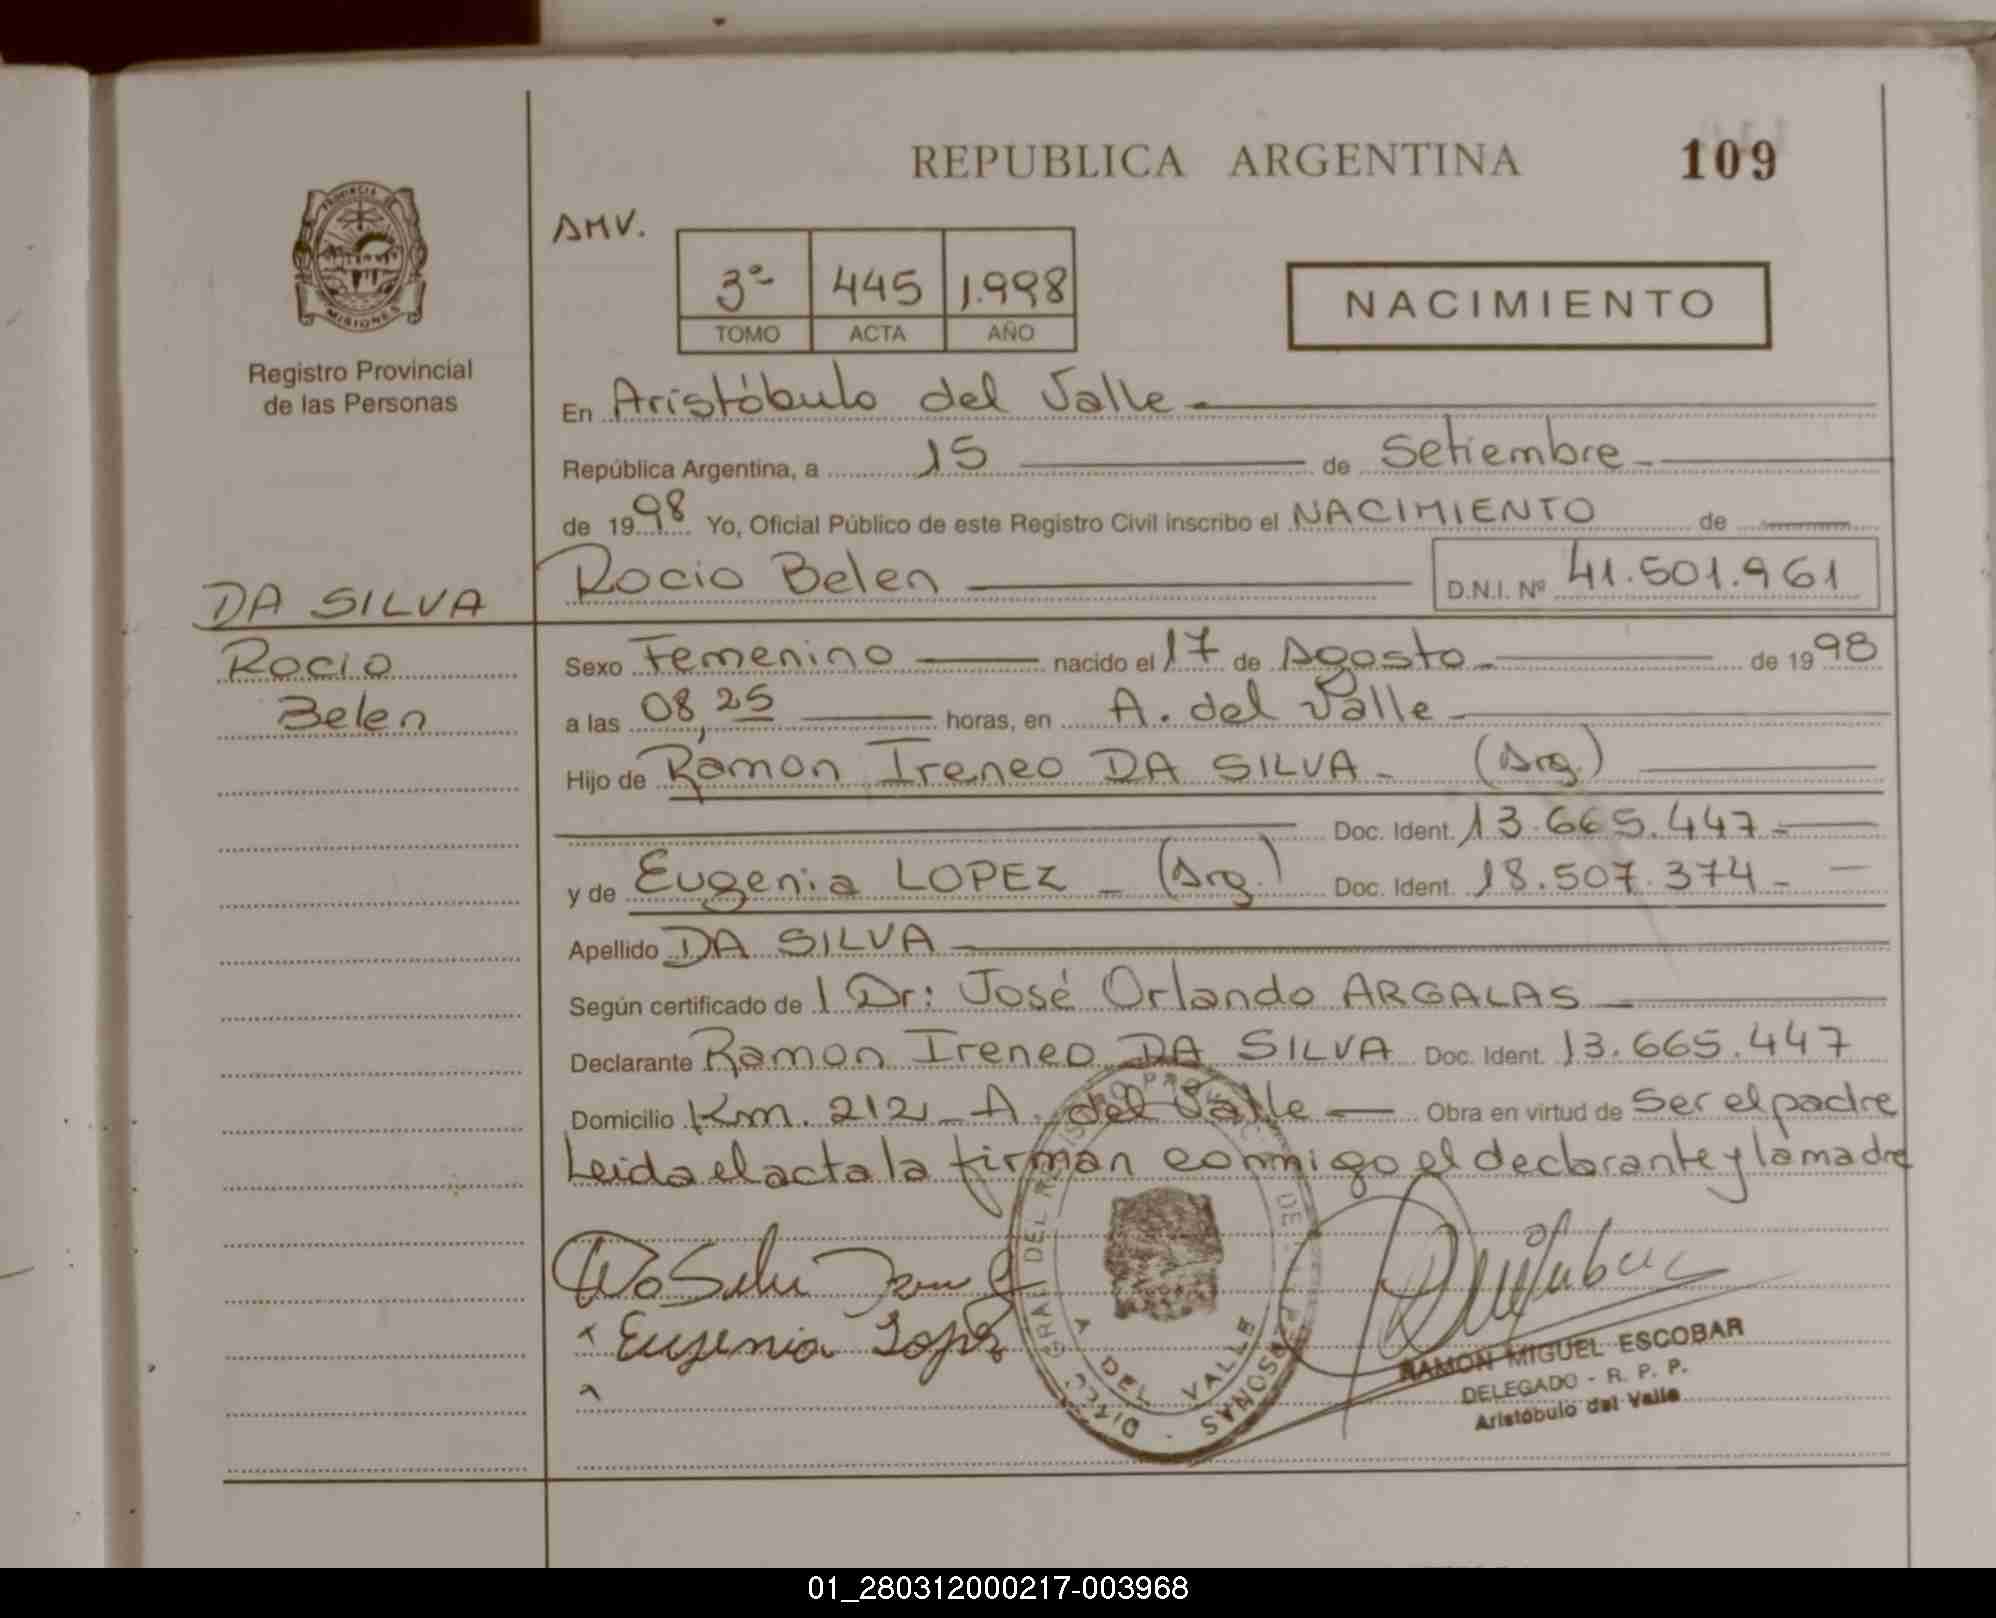 REPUBLICA ARGENTINA 109
PROVINCIA DE
MISIONES
Registro Provincial
de las Personas
AMV.
3º 445 1.998
TOMO ACTA AÑO
NACIMIENTO
En Aristóbulo del Valle
República Argentina, a 15 de Setiembre
de 1998 Yo, Oficial Público de este Registro Civil inscribo el NACIMIENTO de
Rocio Belen D.N.I. Nº 41.501.961
DA SILVA
Rocio
Belen
Sexo Femenino nacido el 17 de Agosto de 1998
a las 08,25 horas, en A. del Valle
Hijo de Ramon Ireneo DA SILVA (Arg.)
Doc. Ident. 13.665.447
y de Eugenia LOPEZ (Arg.) Doc. Ident. 18.507.374
Apellido DA SILVA
Según certificado de 1 Dr: José Orlando ARGALAS
Declarante Ramon Ireneo DA SILVA Doc. Ident. 13.665.447
Domicilio Km. 212 - A. del Valle Obra en virtud de ser el padre
Leida el acta la firman conmigo el declarante y la madre
Da Silva
Eugenia Lopez
DIREC. GRAL. DEL REGISTRO PROVINC. DE PERSONAS
A DEL VALLE
RAMON MIGUEL ESCOBAR
DELEGADO - R. P. P.
Aristóbulo del Valle
01_280312000217-003968